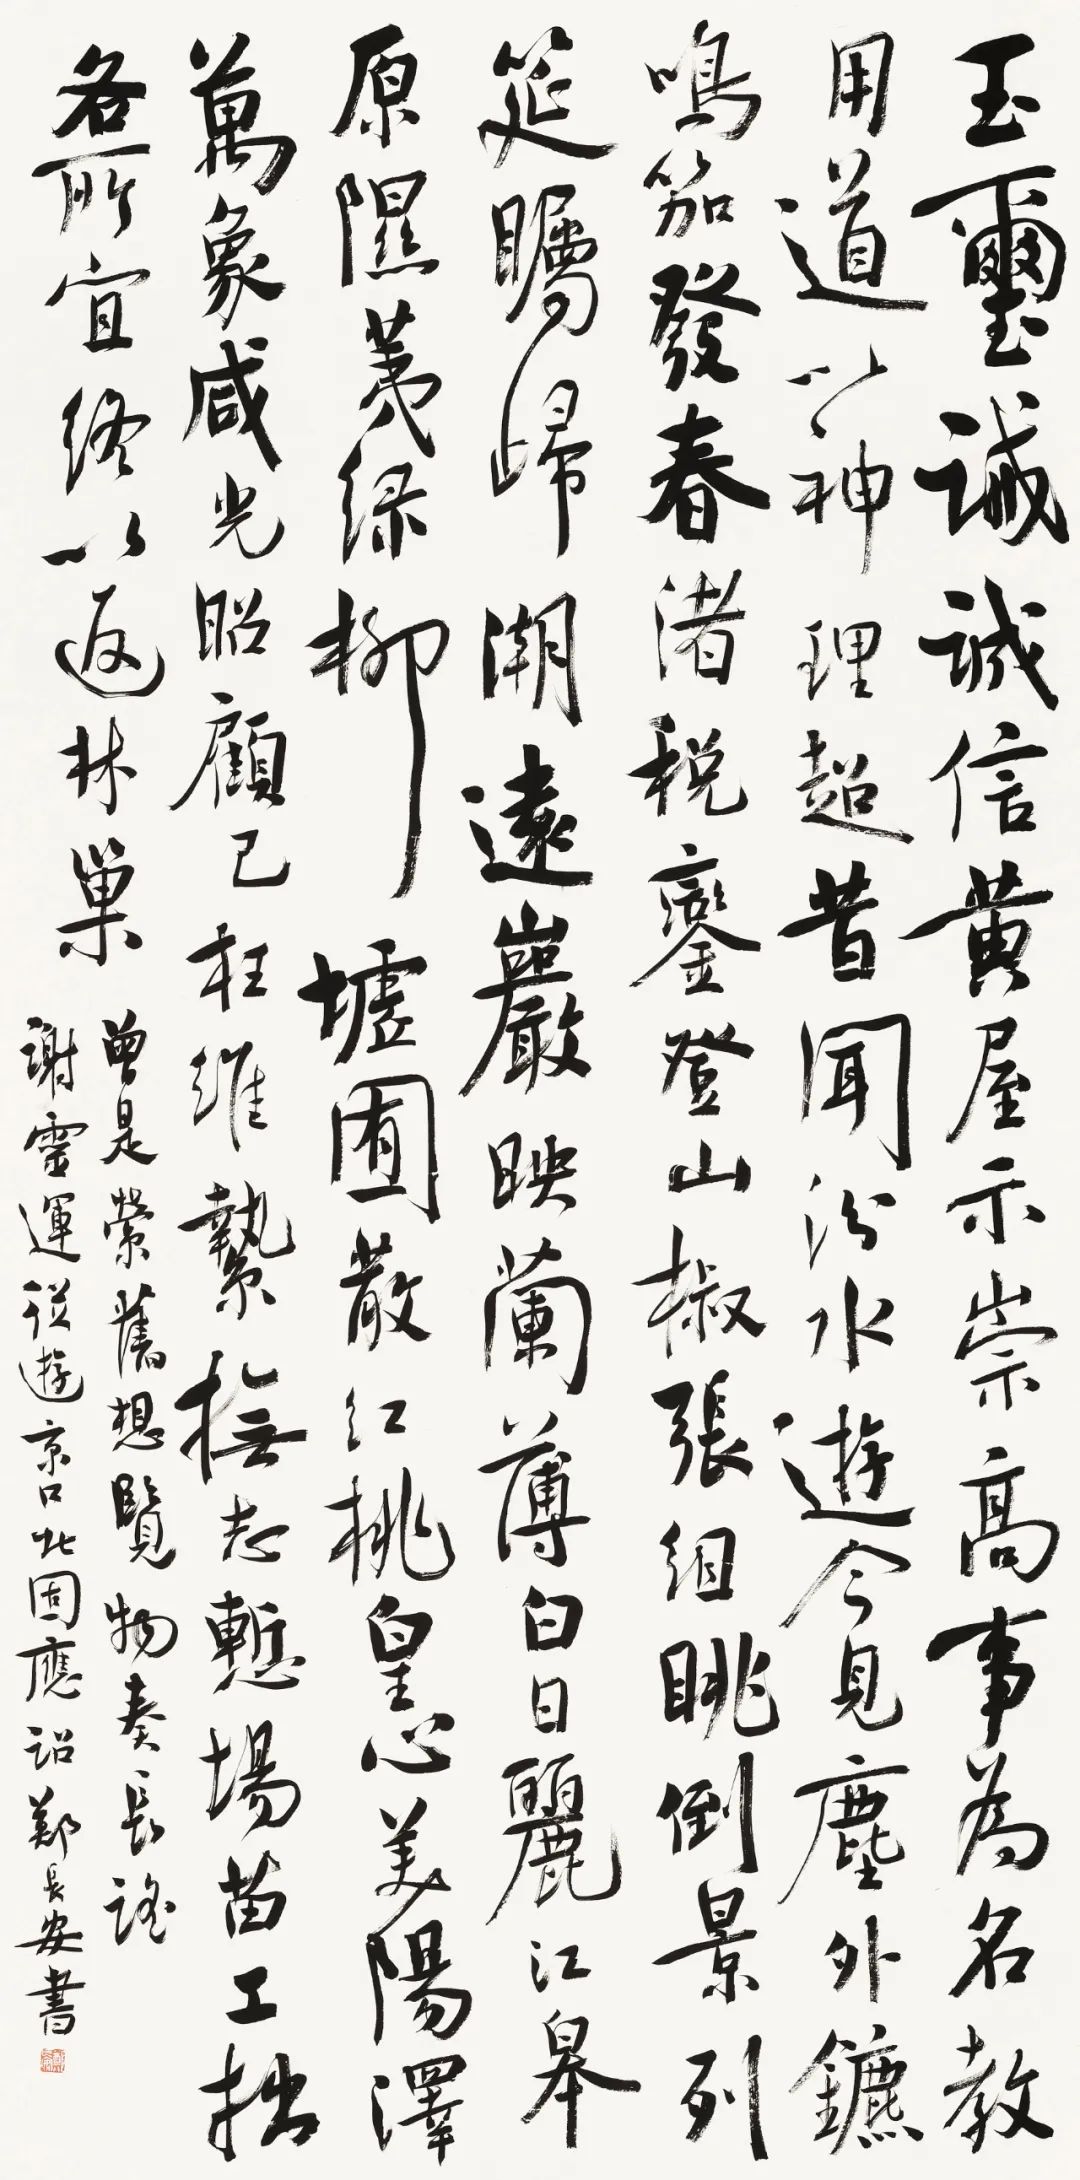 玉璽誡誠信黄屋示崇高事為名教
用道以神理超昔聞汾水遊今見塵外鑣
鳴笳發春渚税鑾登山椒張組眺倒景列
筵矚歸潮遠巖映蘭薄白日麗江皋
原隰荑綠柳墟囿散紅桃皇心美陽澤
萬象咸光昭顧己枉維縶撫志慙場苗工拙
各所宜終以返林巢
曾是縈舊想覽物奏長謠
謝靈運從遊京口北固應詔鄭長安書